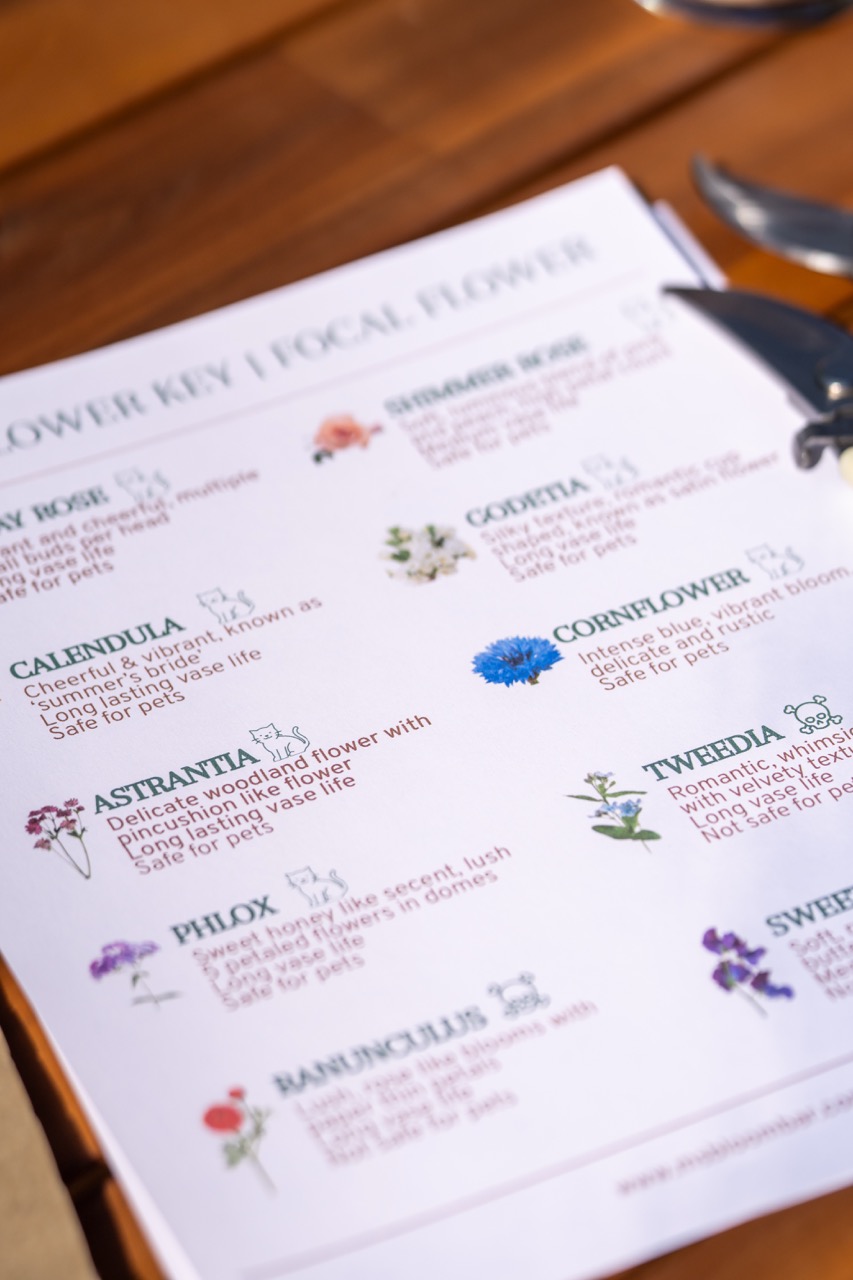 LOWER KEY | FOCAL FLOWER
AY ROSE
ant and cheerful, multiple
all buds per head
ng vase life
afe for pets
CALENDULA
Cheerful & vibrant, known as
'summer's bride'
Long lasting vase life
Safe for pets
ASTRANTIA
Delicate woodland flower with
pincushion like flower
Long lasting vase life
Safe for pets
PHLOX
Sweet honey like secent, lush
5 petaled flowers in domes
Long vase life
Safe for pets
RANUNCULUS
Lush, rose like blooms with
paper thin petals
Long vase life
Not safe for pets
SHIMMER ROSE
Safe for pets
GODETIA
Silky texture, romantic cup
shaped, known as satin flower
Long vase life
Safe for pets
CORNFLOWER
Intense blue, vibrant bloom,
delicate and rustic
Safe for pets
TWEEDIA
Romantic, whimsic
with velvety textu
Long vase life
Not safe for pe
SWEE
www.mybloombar.co